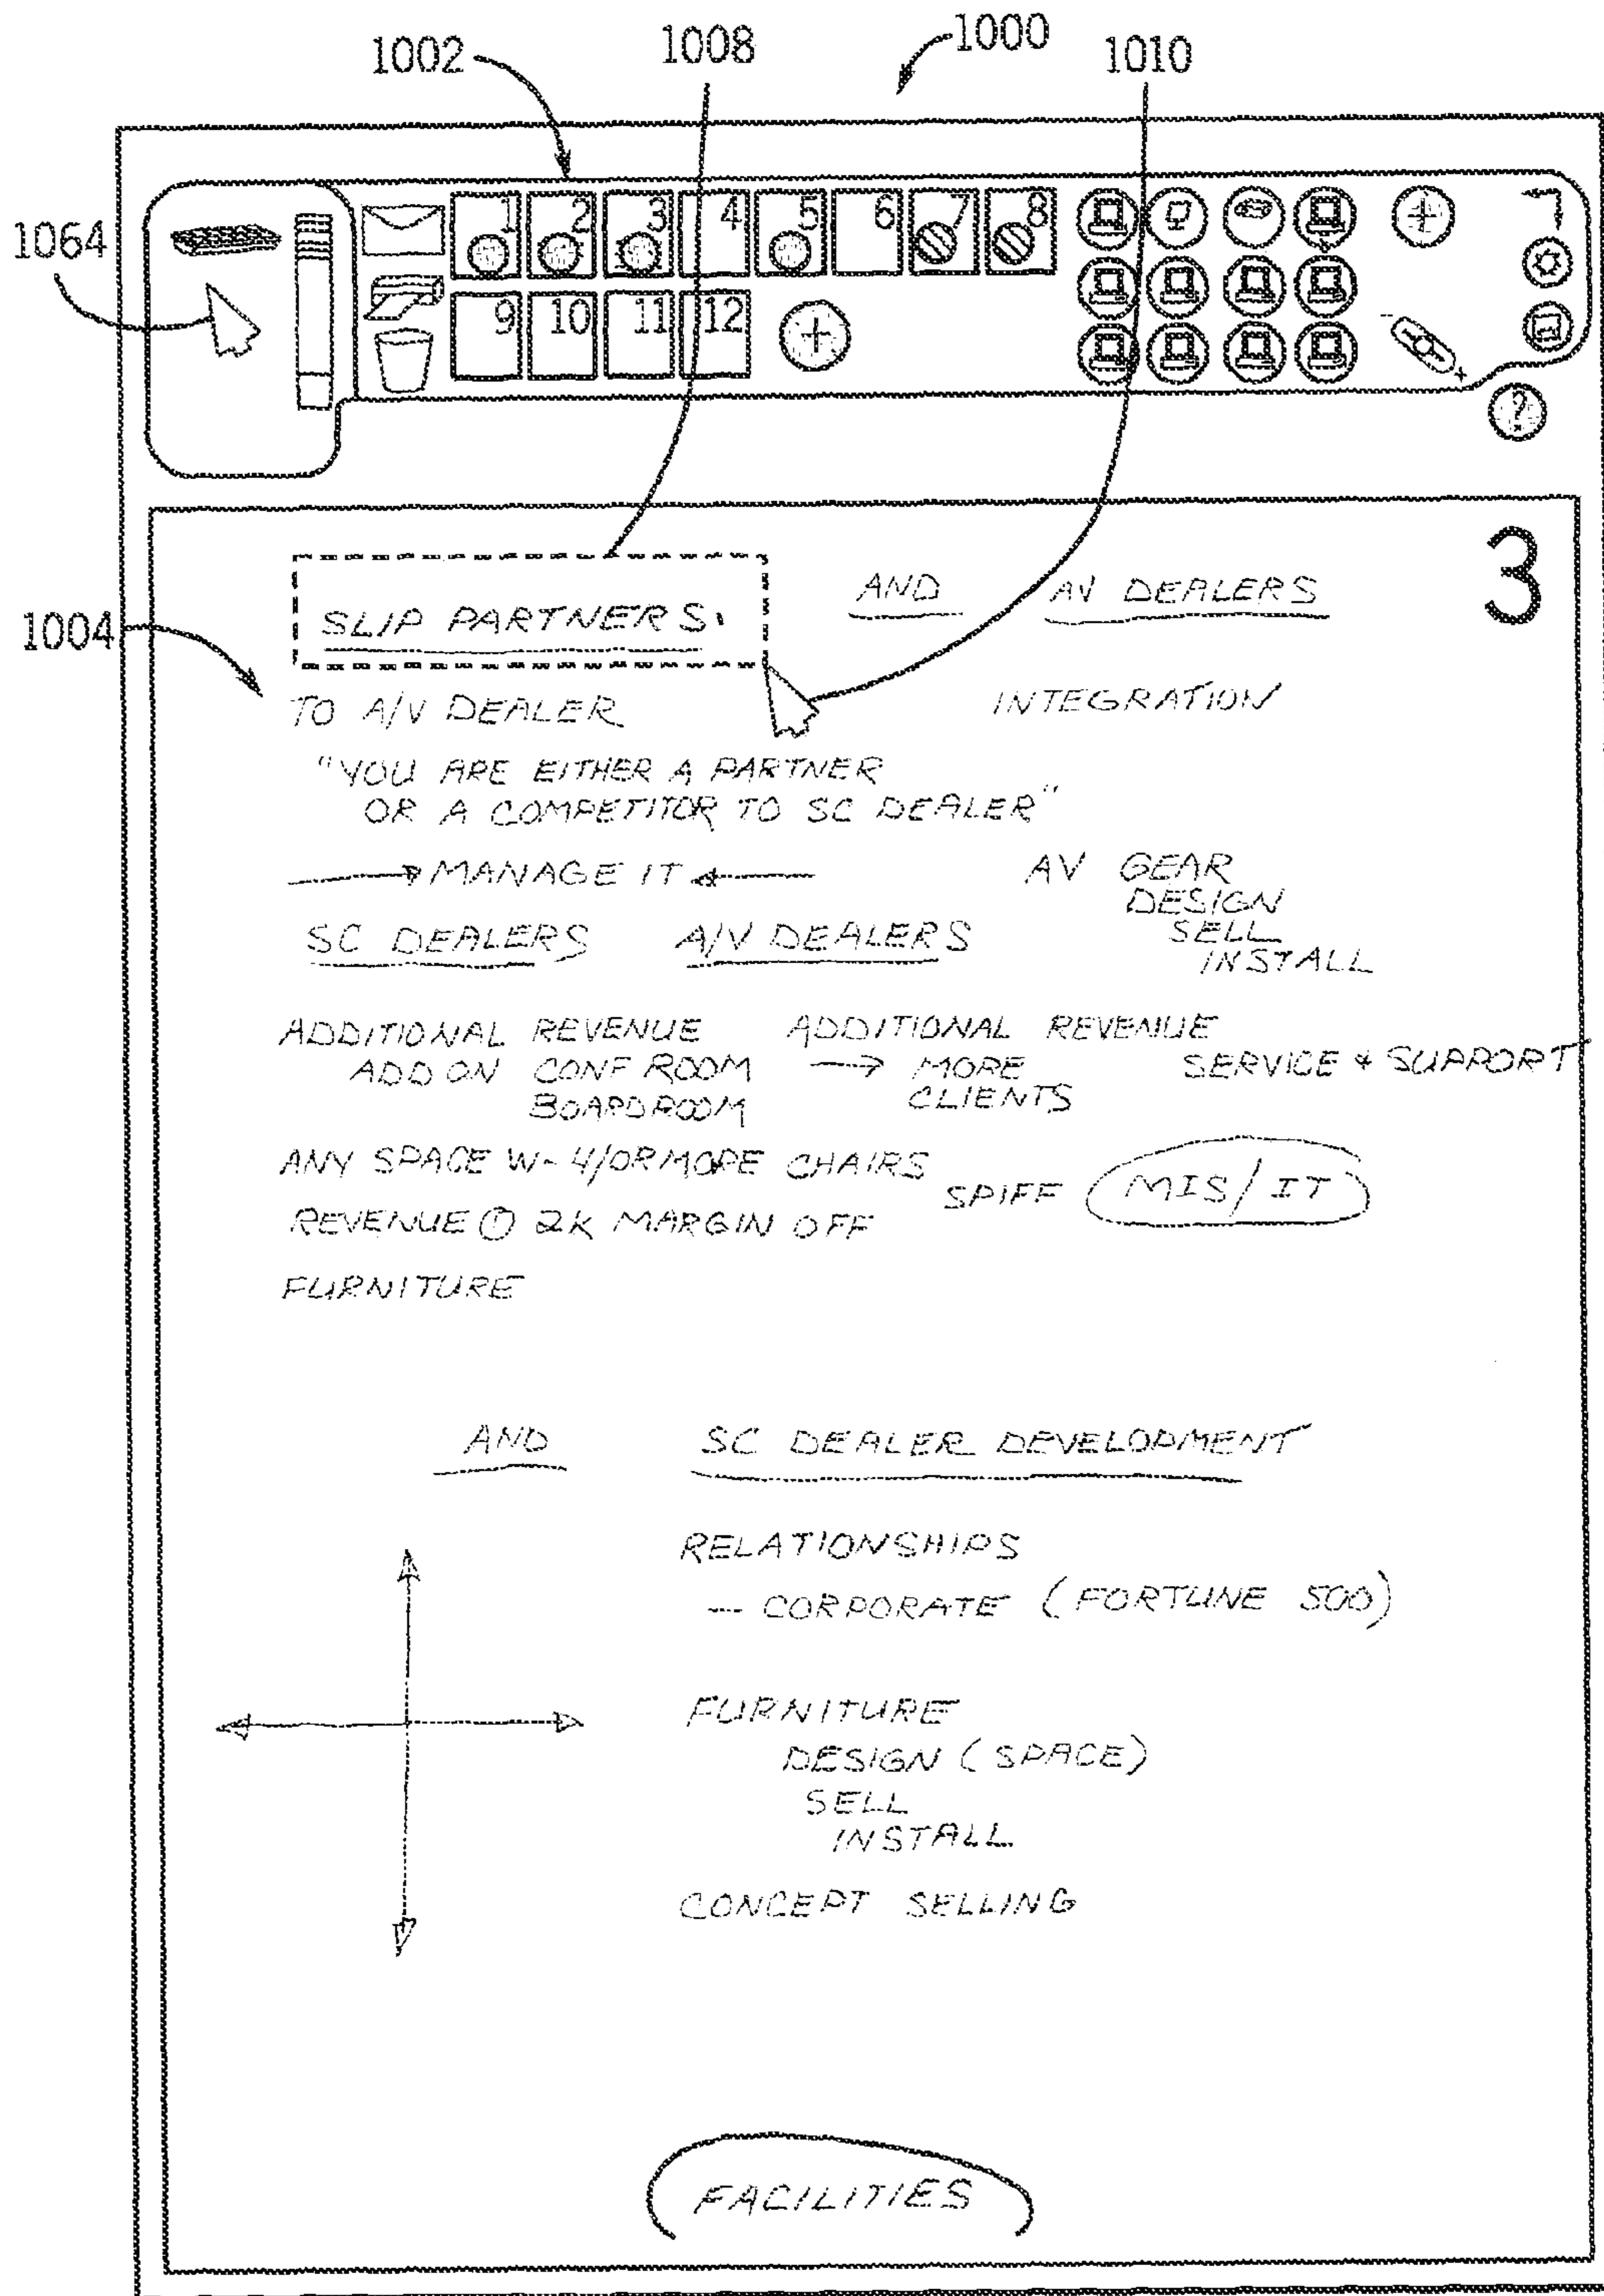 1000
1002
1008
1010
1064
1 2 3 4 5 6 7 8
9 10 11 12
?
3
1004
SLIP PARTNERS
AND AV DEALERS
TO A/V DEALER
INTEGRATION
"YOU ARE EITHER A PARTNER
OR A COMPETITOR TO SC DEALER"
MANAGE IT
AV GEAR
DESIGN
SELL
INSTALL
SC DEALERS A/V DEALERS
ADDITIONAL REVENUE
ADD ON CONF ROOM
BOARDROOM
ADDITIONAL REVENUE
→ MORE
CLIENTS
SERVICE & SUPPORT
ANY SPACE W- 4/OR MORE CHAIRS
SPIFF MIS/IT
REVENUE @ 2K MARGIN OFF
FURNITURE
AND SC DEALER DEVELOPMENT
RELATIONSHIPS
— CORPORATE (FORTUNE 500)
FURNITURE
DESIGN (SPACE)
SELL
INSTALL
CONCEPT SELLING
FACILITIES